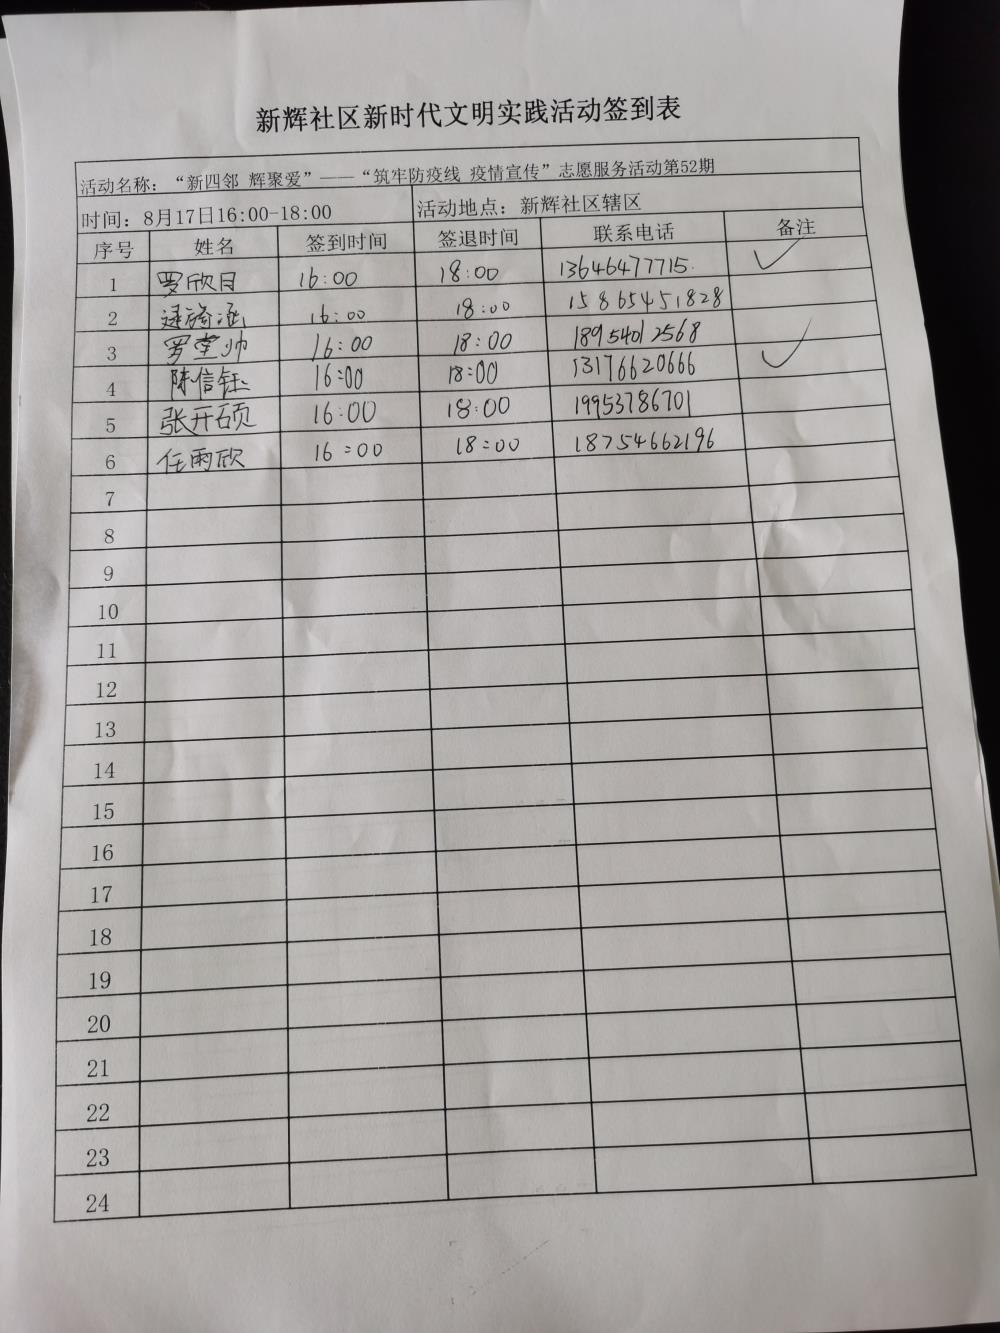 新辉社区新时代文明实践活动签到表
活动名称：“新四邻 辉聚爱”——“筑牢防疫线 疫情宣传”志愿服务活动第52期
时间：8月17日16:00-18:00 活动地点：新辉社区辖区
序号 姓名 签到时间 签退时间 联系电话 备注
1 罗欣月 16:00 18:00 13646477715 ✓
2 16:00 18:00 15865451828
3 罗堂帅 16:00 18:00 18954012568
4 陈信钰 16:00 18:00 13176620666 ✓
5 张开硕 16:00 18:00 19953786701
6 任雨欣 16:00 18:00 18754662196
7
8
9
10
11
12
13
14
15
16
17
18
19
20
21
22
23
24